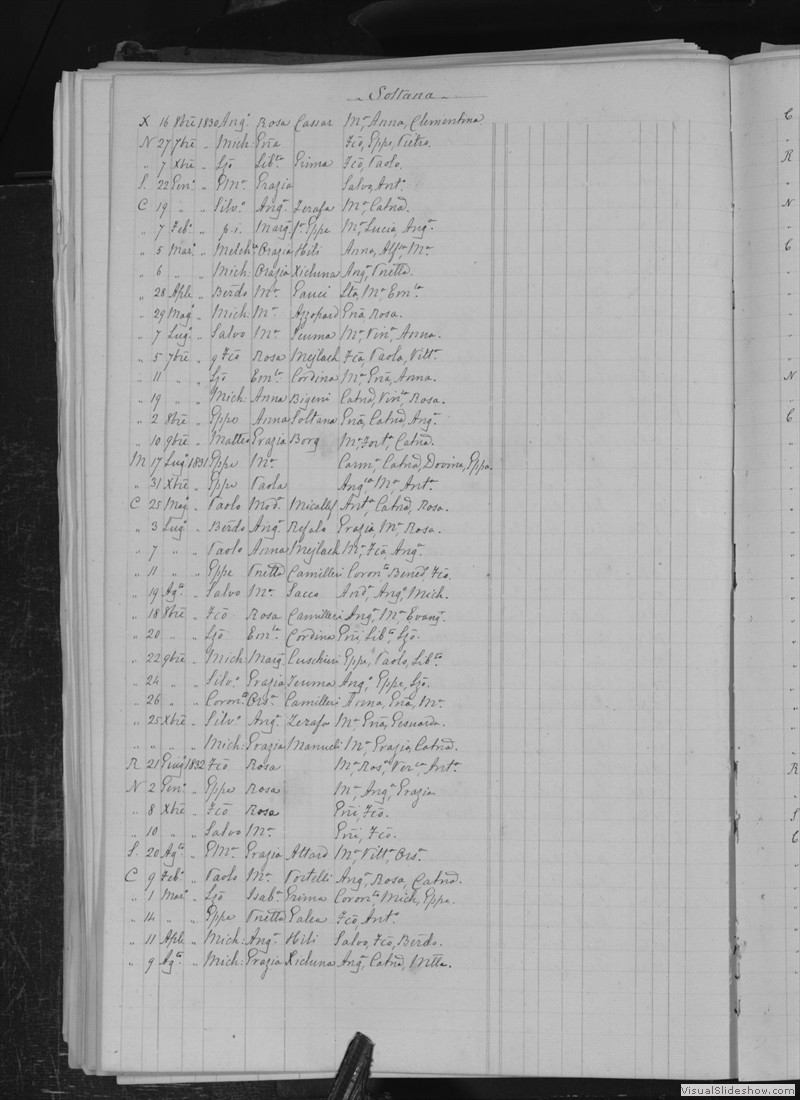 Soltana
X 16 8bre 1830 Angº Rosa Cassar Mª, Anna, Clementina
N 27 7bre „ Mich: Gña Fcō, Gppe, Pietro.
„ 7 Xbre „ Gjō Libta Grima Fcō, Paolo.
S. 22 Genº „ GMª Grazia Salvo, Antº
C 19 „ „ Silvº Angª Zerafa Mª, Catnd.
„ 7 Febº „ p.i. Margª fª Gppe Mª, Lucia, Angª.
„ 5 Marº „ Melchre Orazia Hili Anna, Alfsa, Mª
„ 6 „ „ Mich: Grazia Xicluna Angª, Vnetta.
„ 28 Aple „ Berdo Mª Gauci Sta, Mª Emla.
„ 29 Magº „ Mich: Mª Azzopard Gnā, Rosa.
„ 7 Lugº „ Salvo Mª Teuma Mª, Vinª, Anna.
„ 5 7bre „ 9 Fcō Rosa Mejlach Fcā, Paola, Vittª.
„ 11 „ „ Gjō Emla Cordina Mª Gnā, Anna.
„ 19 „ „ Mich: Anna Bigeni Catnd, Vinca, Rosa.
„ 2 8bre „ Gppe Anna Soltana Gnā, Catnd, Angª.
„ 10 9bre „ Matteo Grazia Borg Mª, Fortª, Catnd.
M 17 Lugº 1831 Gppe Mª Carmª Catnd, Dovina, Gppa.
„ 31 Xbre „ Gppe Paola Angca Mª Antª
C 25 Magº „ Paolo Modª Micallef Antª, Catnd, Rosa.
„ 3 Lugº „ Berdo Angª Refalo Grazia, Mª, Rosa.
„ 7 „ „ Paolo Anna Mejlach Mª, Fcā, Angª.
„ 11 „ „ Gppe Vnetta Camilleri Coronta Benedª, Fcō.
„ 19 Agº „ Salvo Mª Sacco Andª, Angº, Mich.
„ 18 8bre „ Fcō Rosa Camilleri Angª, Mª Evangª.
„ 20 „ „ Gjō Emla Cordina Gni, Libta, Gjō.
„ 22 9bre „ Mich: Margª Cuschieri Gppe, Paolo, Libta.
„ 24 „ „ Silvº Grazia Teuma Angº, Gppe, Gjō.
„ 26 „ „ Coronto Orsª Camilleri Anna, Gnā, Mª.
„ 25 Xbre „ Silvº Angª Zerafa Mª Gnā, Gesuarda.
„ „ „ „ Mich: Grazia Manueli Mª, Grazia, Catnd.
R 21 Giugº 1832 Fcō Rosa Mª, Rosª, Verca, Antª
N 2 Genº „ Gppe Rosa Mª, Angª, Grazia
„ 8 Xbre „ Fcō Rosa Gni, Fcō.
„ 10 „ „ Salvo Mª Gni, Fcō.
S. 20 Agº „ GMª Grazia Attard Mª, Vittª, Orsª.
C 9 Febº „ Paolo Mª Portelli Angª, Rosa, Catnd.
„ 1 Marº „ Gjō Isabª Grima Coronta Mich, Gppa.
„ 14 „ „ Gppe Vnetta Galea Fcō, Antº
„ 11 Aple „ Mich: Angª Hili Salvo, Fcō, Berdo.
„ 9 Agº „ Mich: Grazia Xicluna Angª, Catnd, Vntta.
C
R
N
C
N
C
R
S
C
VisualSlideshow.com